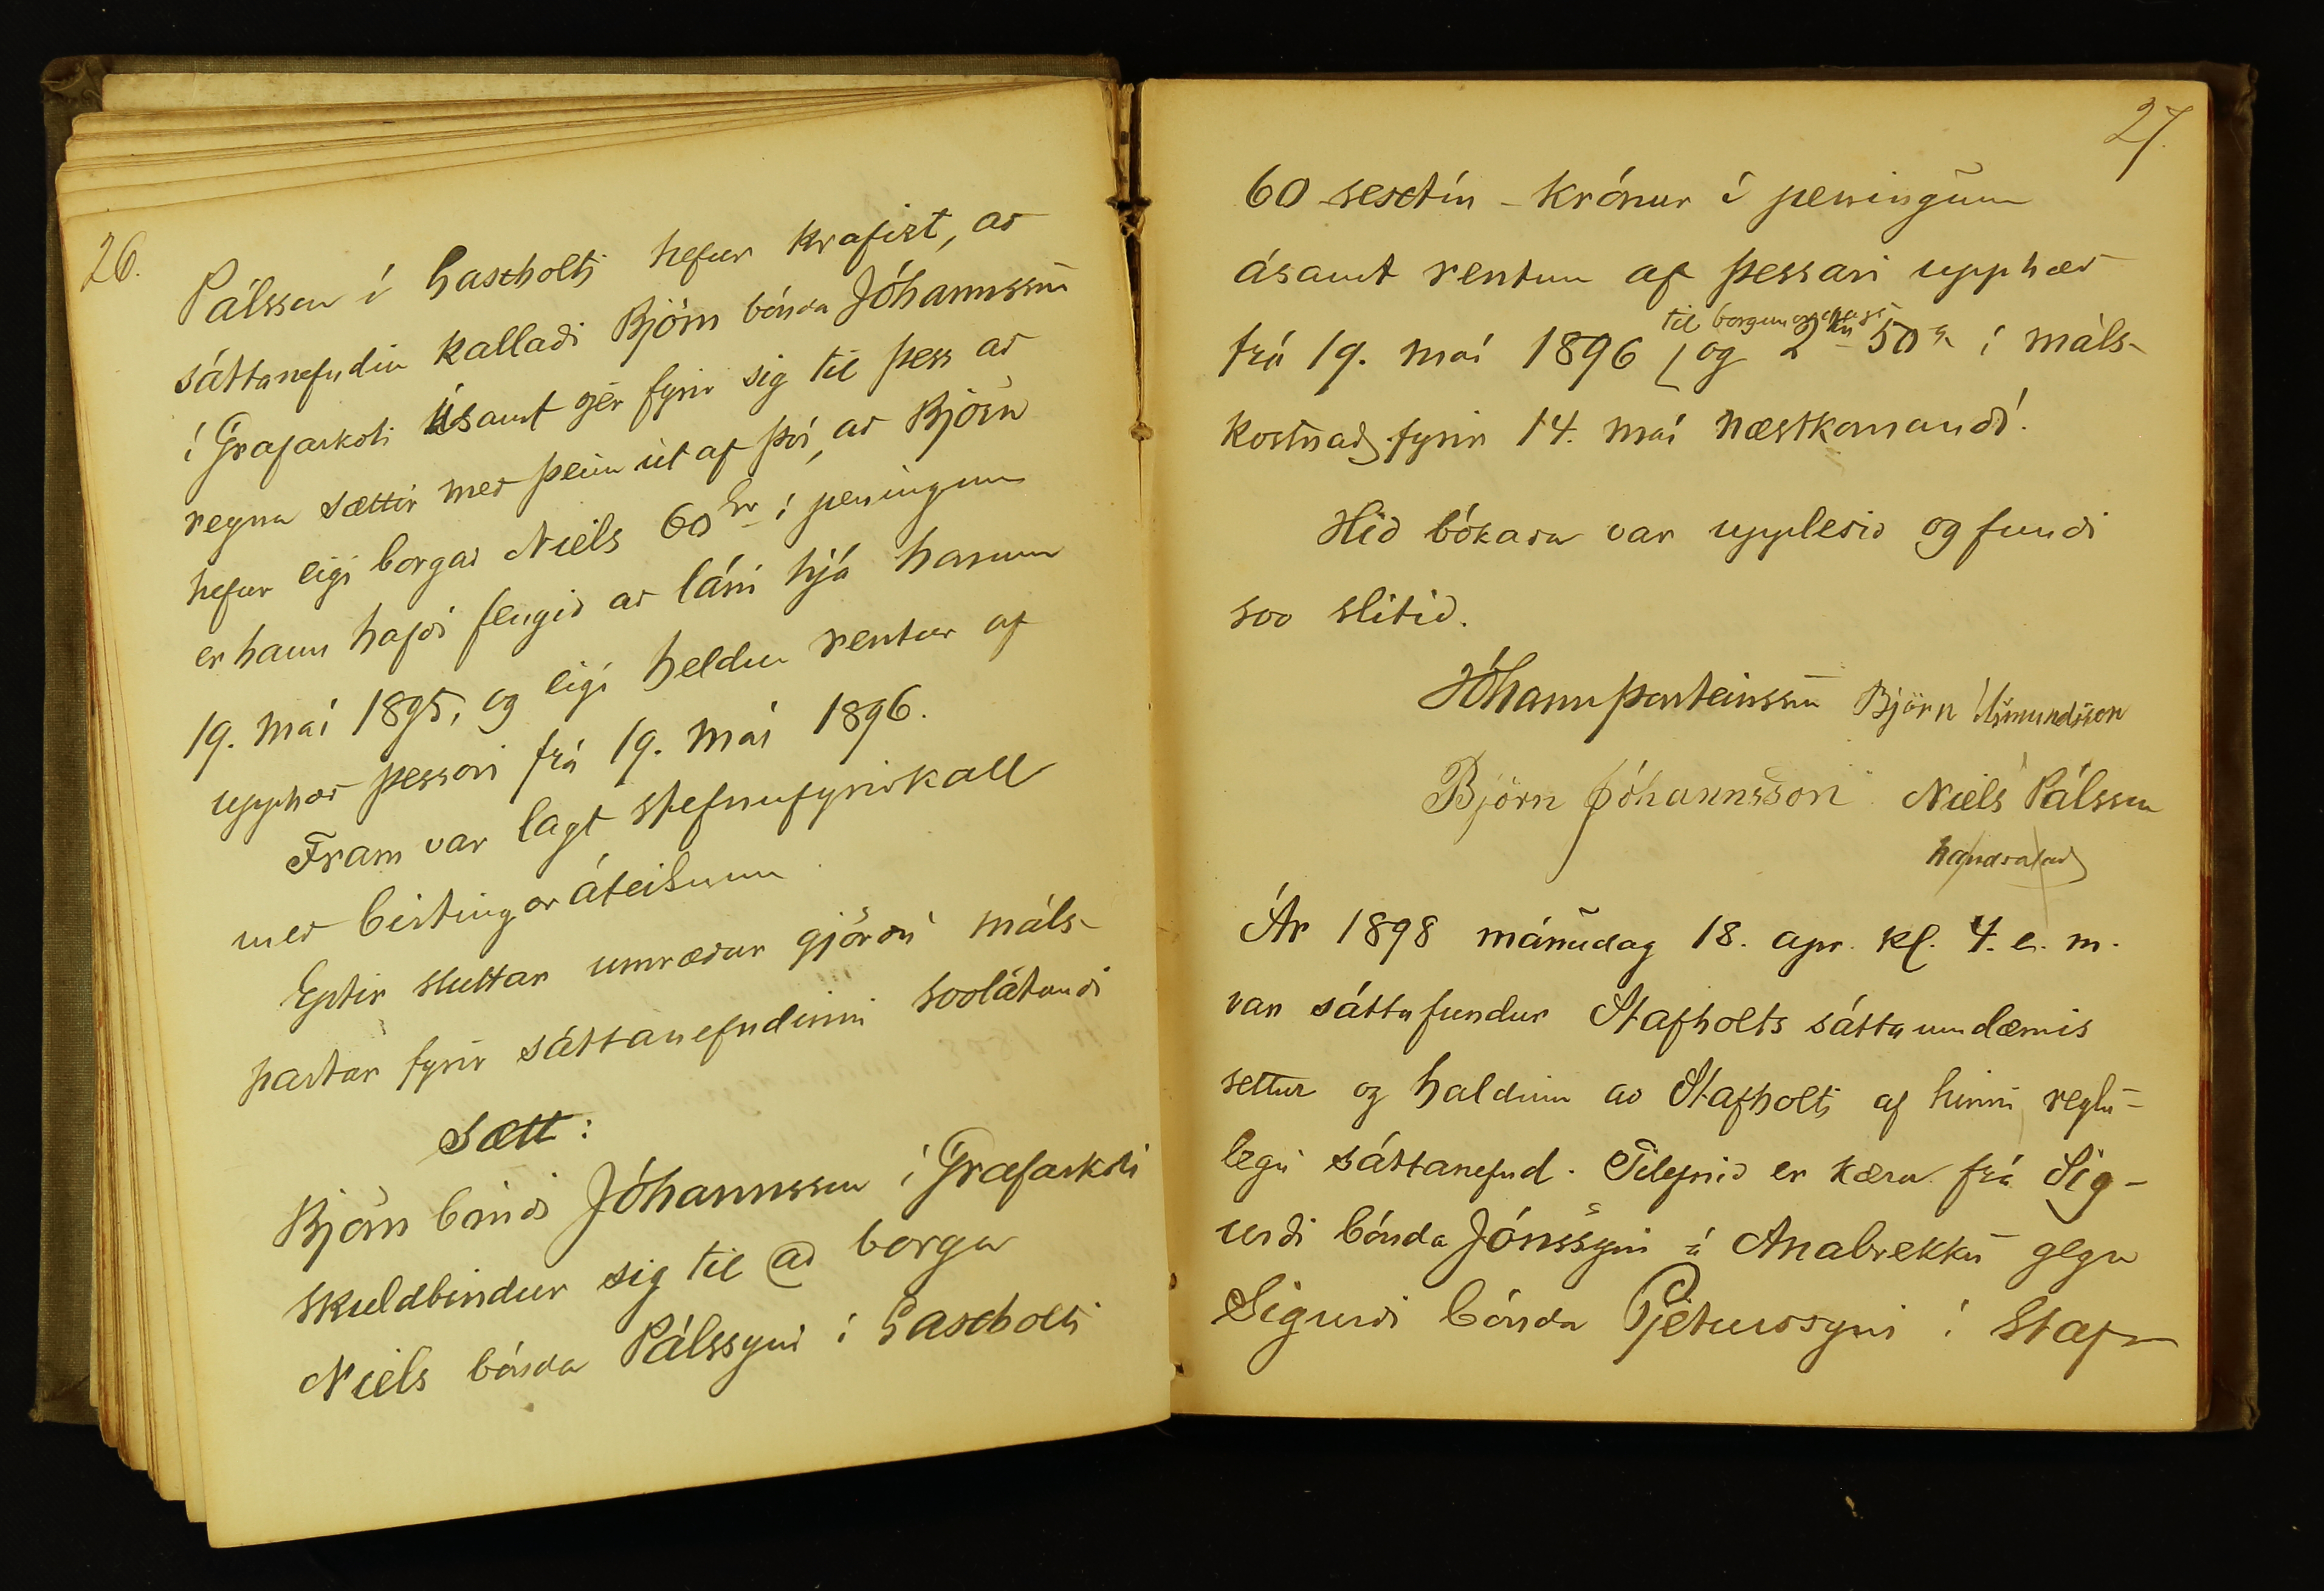 26.
Pálsson í Laxholti hefur krafizt, að
sáttanefndin kallaði Björn bónda Jóhannsson
í Grafarkoti ásamt sjer fyrir sig til þess að
reyna sættir með þeim út af því, að Björn
hefur eigi borgað Níels 60 kr í peningum
er hann hafði fengið að láni hjá honum
19. maí 1895, og eigi heldur rentur af
upphæð þessari frá 19. maí 1896.
Fram var lagt stefnufyrirkall
með birtingaráteiknun
Eptir stuttar umræður gjörðu máls-
partar fyrir sáttanefndinni svolátandi
Sætt:
Björn bóndi Jóhannsson í Grafarkoti
skuldbindur sig til að borga
Níels bónda Pálssyni í Laxholti
27.
60 - sextíu - krónur í peningum
ásamt rentum af þessari upphæð
til borgunardags
frá 19. maí 1896 og 2 kr 50 a í máls-
kostnað fyrir 14. maí næstkomandi.
Hið bókaða var upplesið og fundi
svo slitið.
Jóhann Þorsteinsson Björn Ásmundsson
Björn Jóhannsson Níels Pálsson
handsalað
Ár 1898 mánudag 18. apr. kl. 4. e. m.
var sáttafundur Stafholts sáttaumdæmis
settur og haldinn að Stafholti af hinni reglu-
legu sáttanefnd. Tilefnið er kæra frá Sig-
urði bónda Jónssyni á Anabrekku gegn
Sigurði bónda Pjeturssyni í Stap-